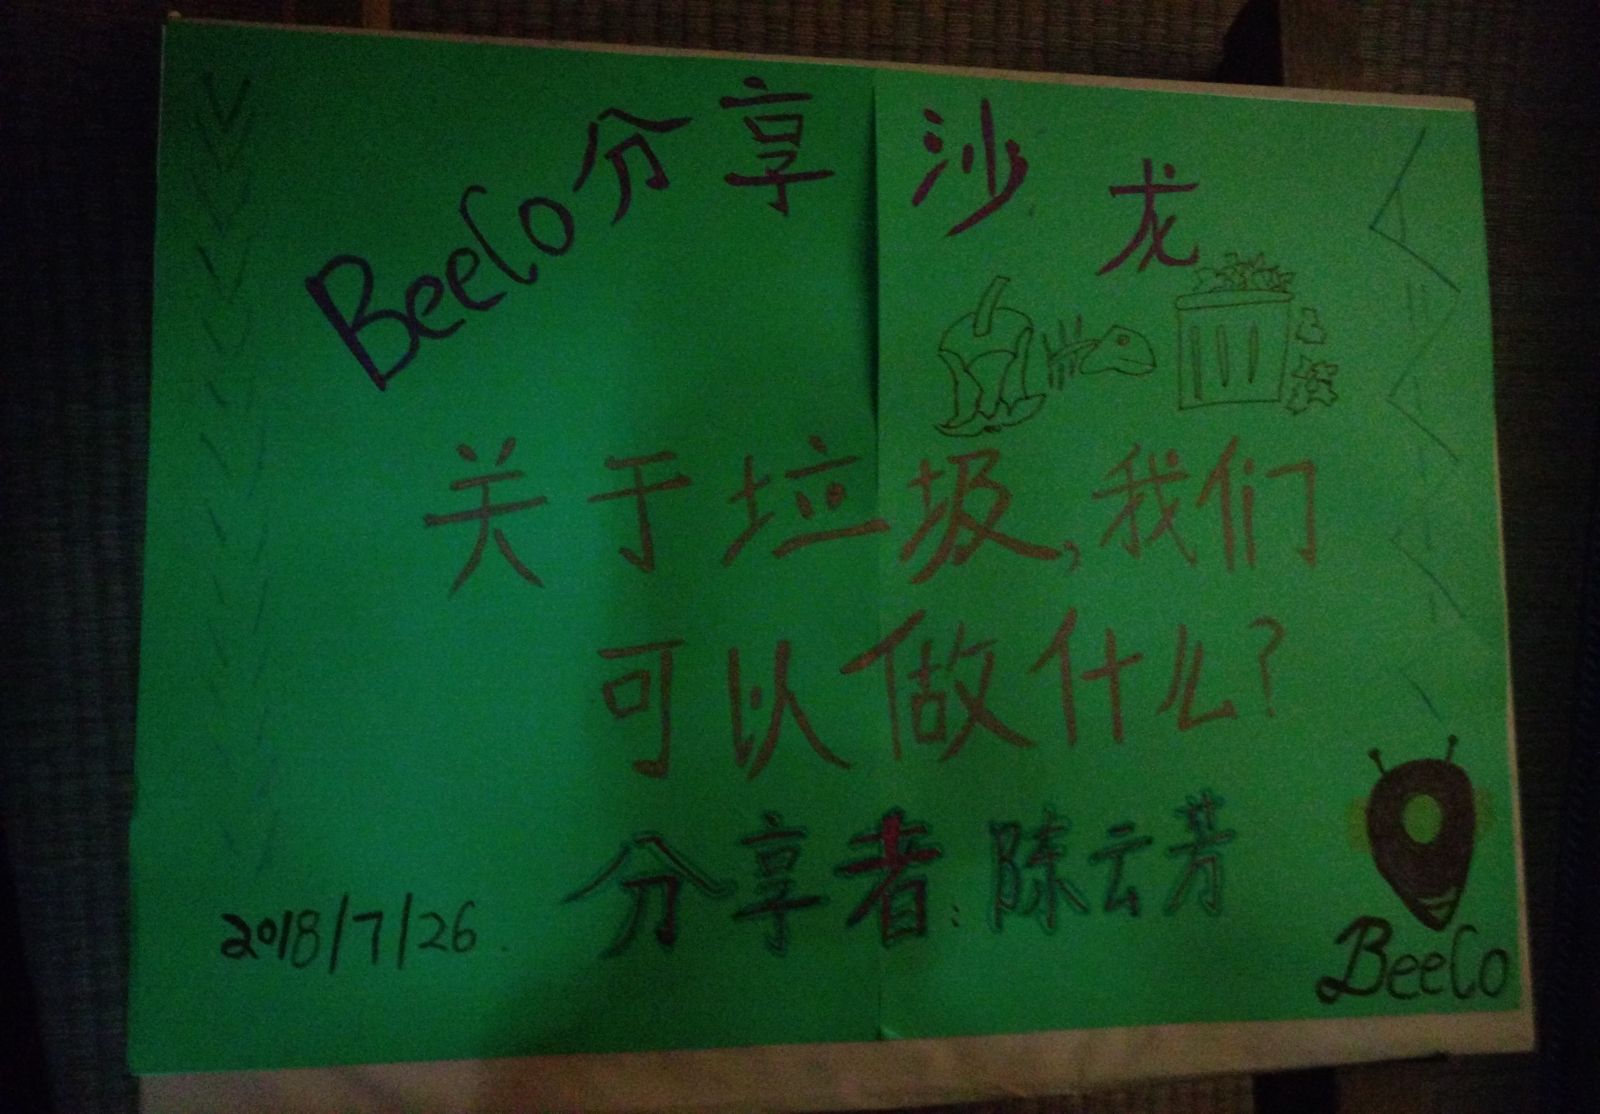 BeeCo分享沙龙
关于垃圾,我们
可以做什么?
分享者:陈云芳
2018/7/26.
BeeCo